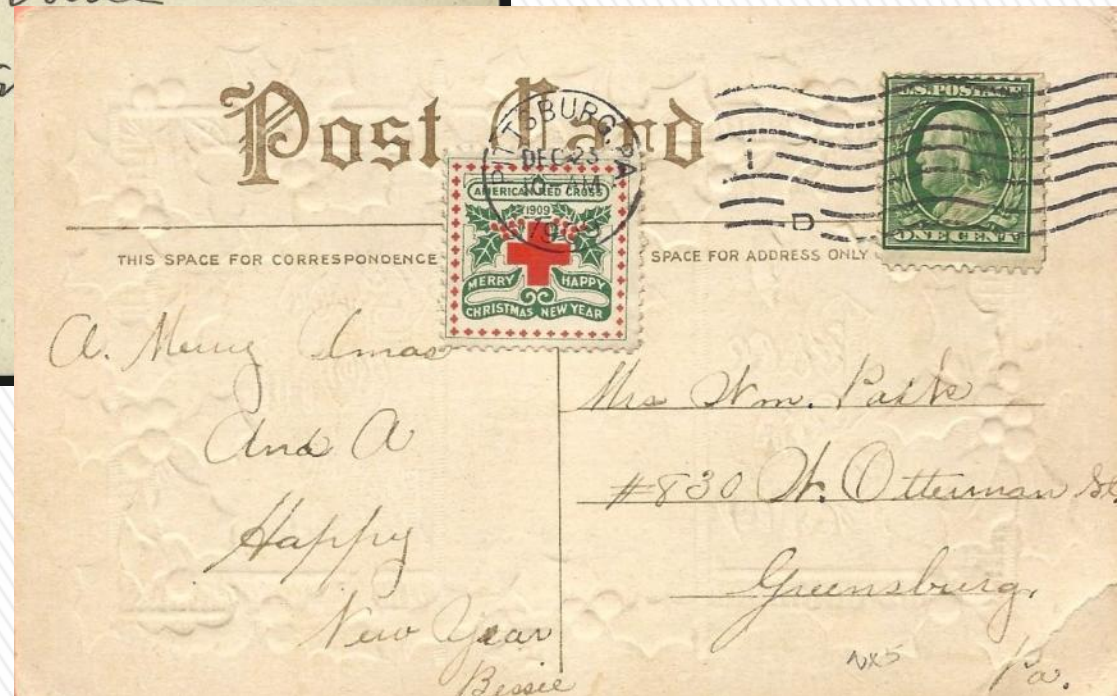 Post Card
PITTSBURG, PA
DEC 23
10-AM
1909
U.S. POSTAGE
ONE CENT
D
AMERICAN RED CROSS
1909
MERRY HAPPY
CHRISTMAS NEW YEAR
THIS SPACE FOR CORRESPONDENCE
SPACE FOR ADDRESS ONLY
A. Merry Xmas
And A
Happy
New Year
Bessie
Mrs Wm.
#830 W. Otterman St.
Greensburg,
Pa.